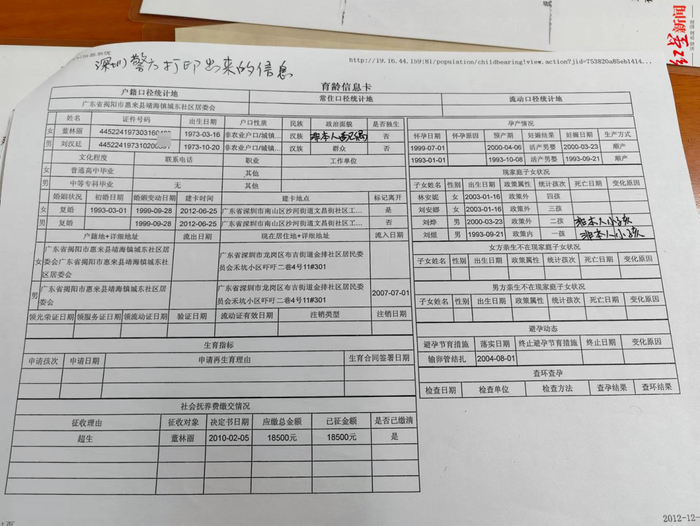 深圳警方打印出来的信息
http://19.16.44.159:81/population/childbearing!view.action?jid=753820a85eb1414...
育龄信息卡
户籍口径统计地 常住口径统计地 流动口径统计地
广东省揭阳市惠来县靖海镇城东社区居委会
姓名 证件号码 出生日期 户口性质 民族 政治面貌 是否独生
女 董林丽 1973-03-16 非农业户口/城镇... 汉族 否
男 刘汉廷 1973-10-20 非农业户口/城镇... 汉族 群众 否
文化程度 联系电话 职业 工作单位
女 普通高中毕业 其他
男 中等专科毕业 无 其他
婚姻状况 初婚日期 婚姻变动日期 建卡时间 建卡地点 标记离开
女 复婚 1993-03-01 1999-09-28 2012-06-25 广东省深圳市南山区沙河街道文昌街社区工... 否
男 复婚 1999-09-28 2012-06-25 广东省深圳市南山区沙河街道文昌街社区工... 否
户籍地+详细地址 流出日期 现在居住地+详细地址 流入日期
女 广东省揭阳市惠来县靖海镇城东社区居委会广东省揭阳市惠来县靖海镇城东社区居委会
广东省深圳市龙岗区布吉街道金排社区居民委员会禾坑小区吓吓二巷4号11#301
男 广东省揭阳市惠来县靖海镇城东社区居委会
广东省深圳市龙岗区布吉街道金排社区居民委员会禾坑小区吓吓二巷4号11#301 2007-07-01
领光荣证日期 领服务证日期 领流动证日期 验证日期 流动证有效日期 注销类型 注销日期
生育指标
申请孩次 申请日期 申请再生育理由 生育合同签署日期
社会抚养费缴交情况
征收理由 征收对象 决定书日期 应缴总金额 已征金额 是否已缴清
超生 董林丽 2010-02-05 18500元 18500元 是
孕产情况
怀孕日期 怀孕原因 预产期 妊娠结果 妊娠日期 生产方式
1999-07-01 2000-04-06 活产男婴 2000-03-23 顺产
1993-01-01 1993-10-08 活产男婴 1993-09-21 顺产
现家庭子女状况
子女姓名 性别 出生日期 政策属性 统计孩次 死亡日期 变化原因
林安妮 女 2003-01-16 政策外 四孩
刘安娜 女 2003-01-16 政策外 三孩
刘烨 男 2000-03-23 政策外 二孩 非本人小孩
刘煜 男 1993-09-21 政策内 一孩 非本人小孩
女方亲生不在现家庭子女状况
子女姓名 性别 出生日期 政策属性 统计孩次 死亡日期 变化原因
男方亲生不在现家庭子女状况
子女姓名 性别 出生日期 政策属性 统计孩次 死亡日期 变化原因
避孕动态
避孕节育措施 落实日期 终止避孕节育措施 终止日期 变化原因
输卵管结扎 2004-08-01
查环查孕
检查日期 检查单位 检查方法 查孕结果 查环结果
2012-12-